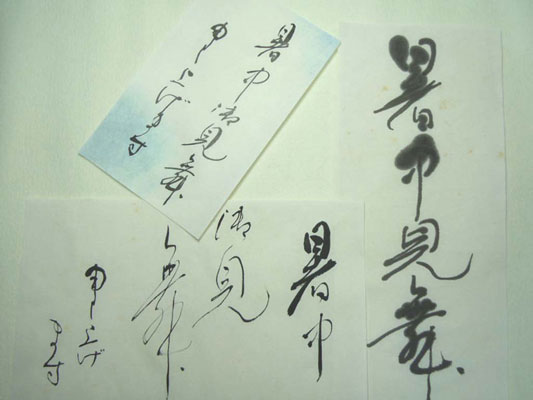 暑中御見舞
申し上げます
暑中見舞
暑中
御見
舞
申し上げ
ます